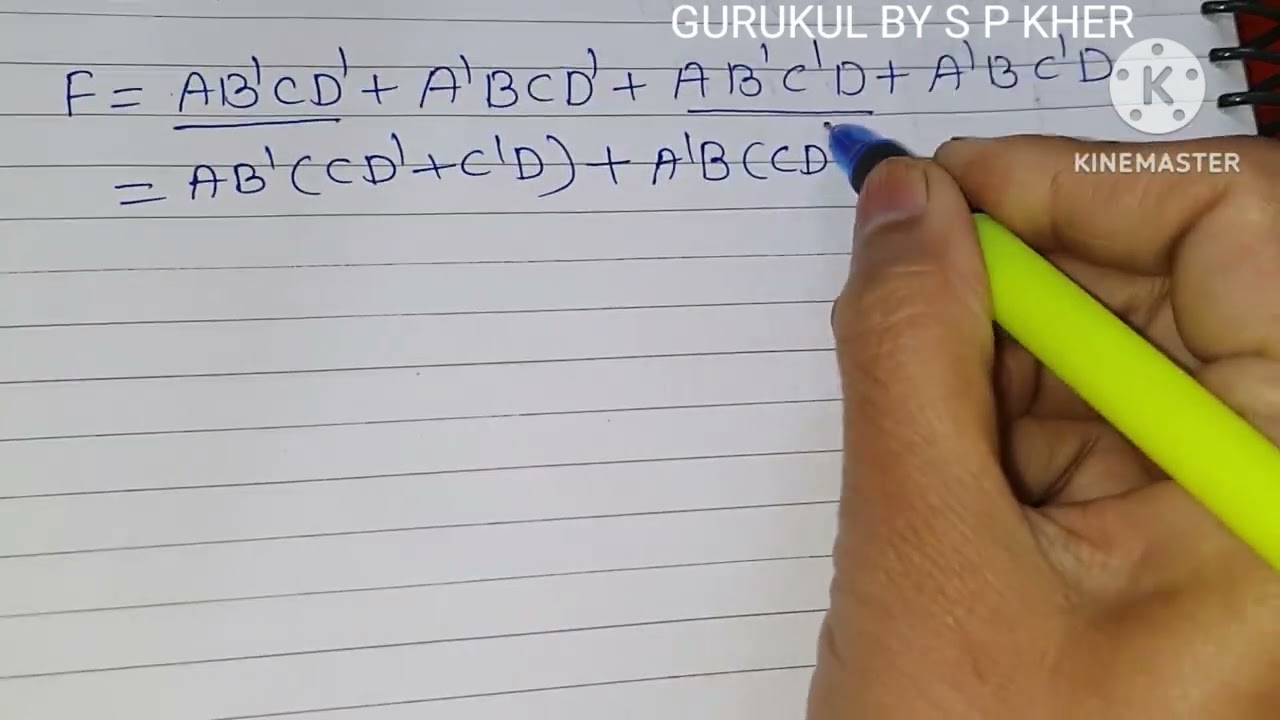 GURUKUL BY S P KHER
F = AB'CD' + A'BCD' + AB'C'D + A'BC'D
K
KINEMASTER
= AB'(CD' + C'D) + A'B(CD